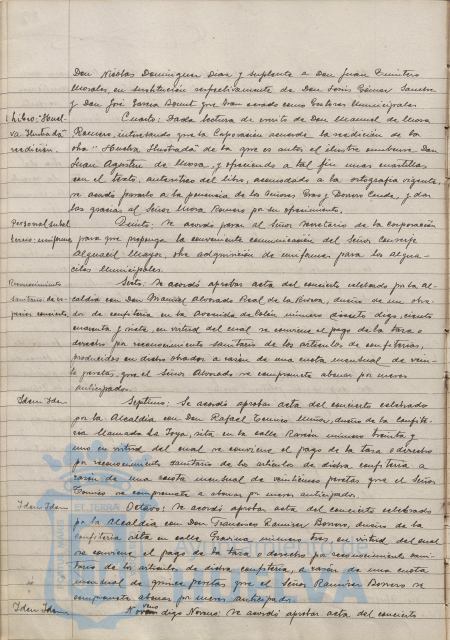 Don Nicolas Dominguez Diaz y suplente a Don Juan Quintero
Morales, en sustitución respectivamente de Don Sánchez
y Don José Garcia que han cesado como Gestores Municipales
Libro "Huel-
va Ilustrada"
reedición.
Cuarto: Dada lectura de escrito de Don Manuel de Mora
Romero, interesando que la Corporación acuerde la reedición de la
obra "Huelva Ilustrada" de la que es autor el ilustre onubense Don
Juan Agustin de Mora, y ofreciendo a tal fin unas cuartillas
con el texto, autentico del libro, acomodado a la ortografia vigente,
se acordó pasarlo a la ponencia de los Señores y Conde, y dar
las gracias al Señor Mora Romero por su ofrecimiento.
Personal subal-
terno: uniforme
Quinto: Se acordó pasar al Señor Secretario de la Corporación
para que proponga la conveniente comunicación del Señor Conserje
Alguacil Mayor, sobre adquisición de uniformes para los Algua-
ciles Municipales.
Reconocimiento
sanitario de
conciertos
Sexto: Se acordó aprobar acta del concierto celebrado por la Al-
caldia con Don Manuel Alvarado Real de la Riva, dueño de un obra-
dor de confiteria en la Avenida de Colón número digo, ciento
cincuenta y siete, en virtud del cual se conviene el pago de la tasa o
derecho por reconocimiento sanitario de los articulos de confiterias,
producidos en dicho obrador, a razón de una cuota mensual de vein-
te pesetas, que el Señor Alvarado se compromete abonar por meses
anticipados.
Idem Idem
Septimo: Se acordó aprobar acta del concierto celebrado
por la Alcaldia con Don Rafael Muñoz, dueño de la confite-
ria llamada La Joya, sita en la calle Rascón número treinta y
uno en virtud del cual se conviene el pago de la tasa o derecho
por reconocimiento sanitario de los articulos de dicha confiteria a
razón de una cuota mensual de veinticinco pesetas que el Señor
se compromete a abonar por meses anticipados.
Idem Idem
Octavo: Se acordó aprobar acta del concierto celebrado
por la Alcaldia con Don Francisco Ramirez Borrero, dueño de la
confiteria sita en calle Gravina número tres, en virtud del cual
se conviene el pago de la tasa o derecho por reconocimiento sani-
tario de los articulos de dicha confiteria, a razón de una cuota
mensual de quince pesetas que el Señor Ramirez Borrero se
compromete abonar por meses anticipado.
Idem Idem
digo Noveno: Se acordó aprobar acta del concierto